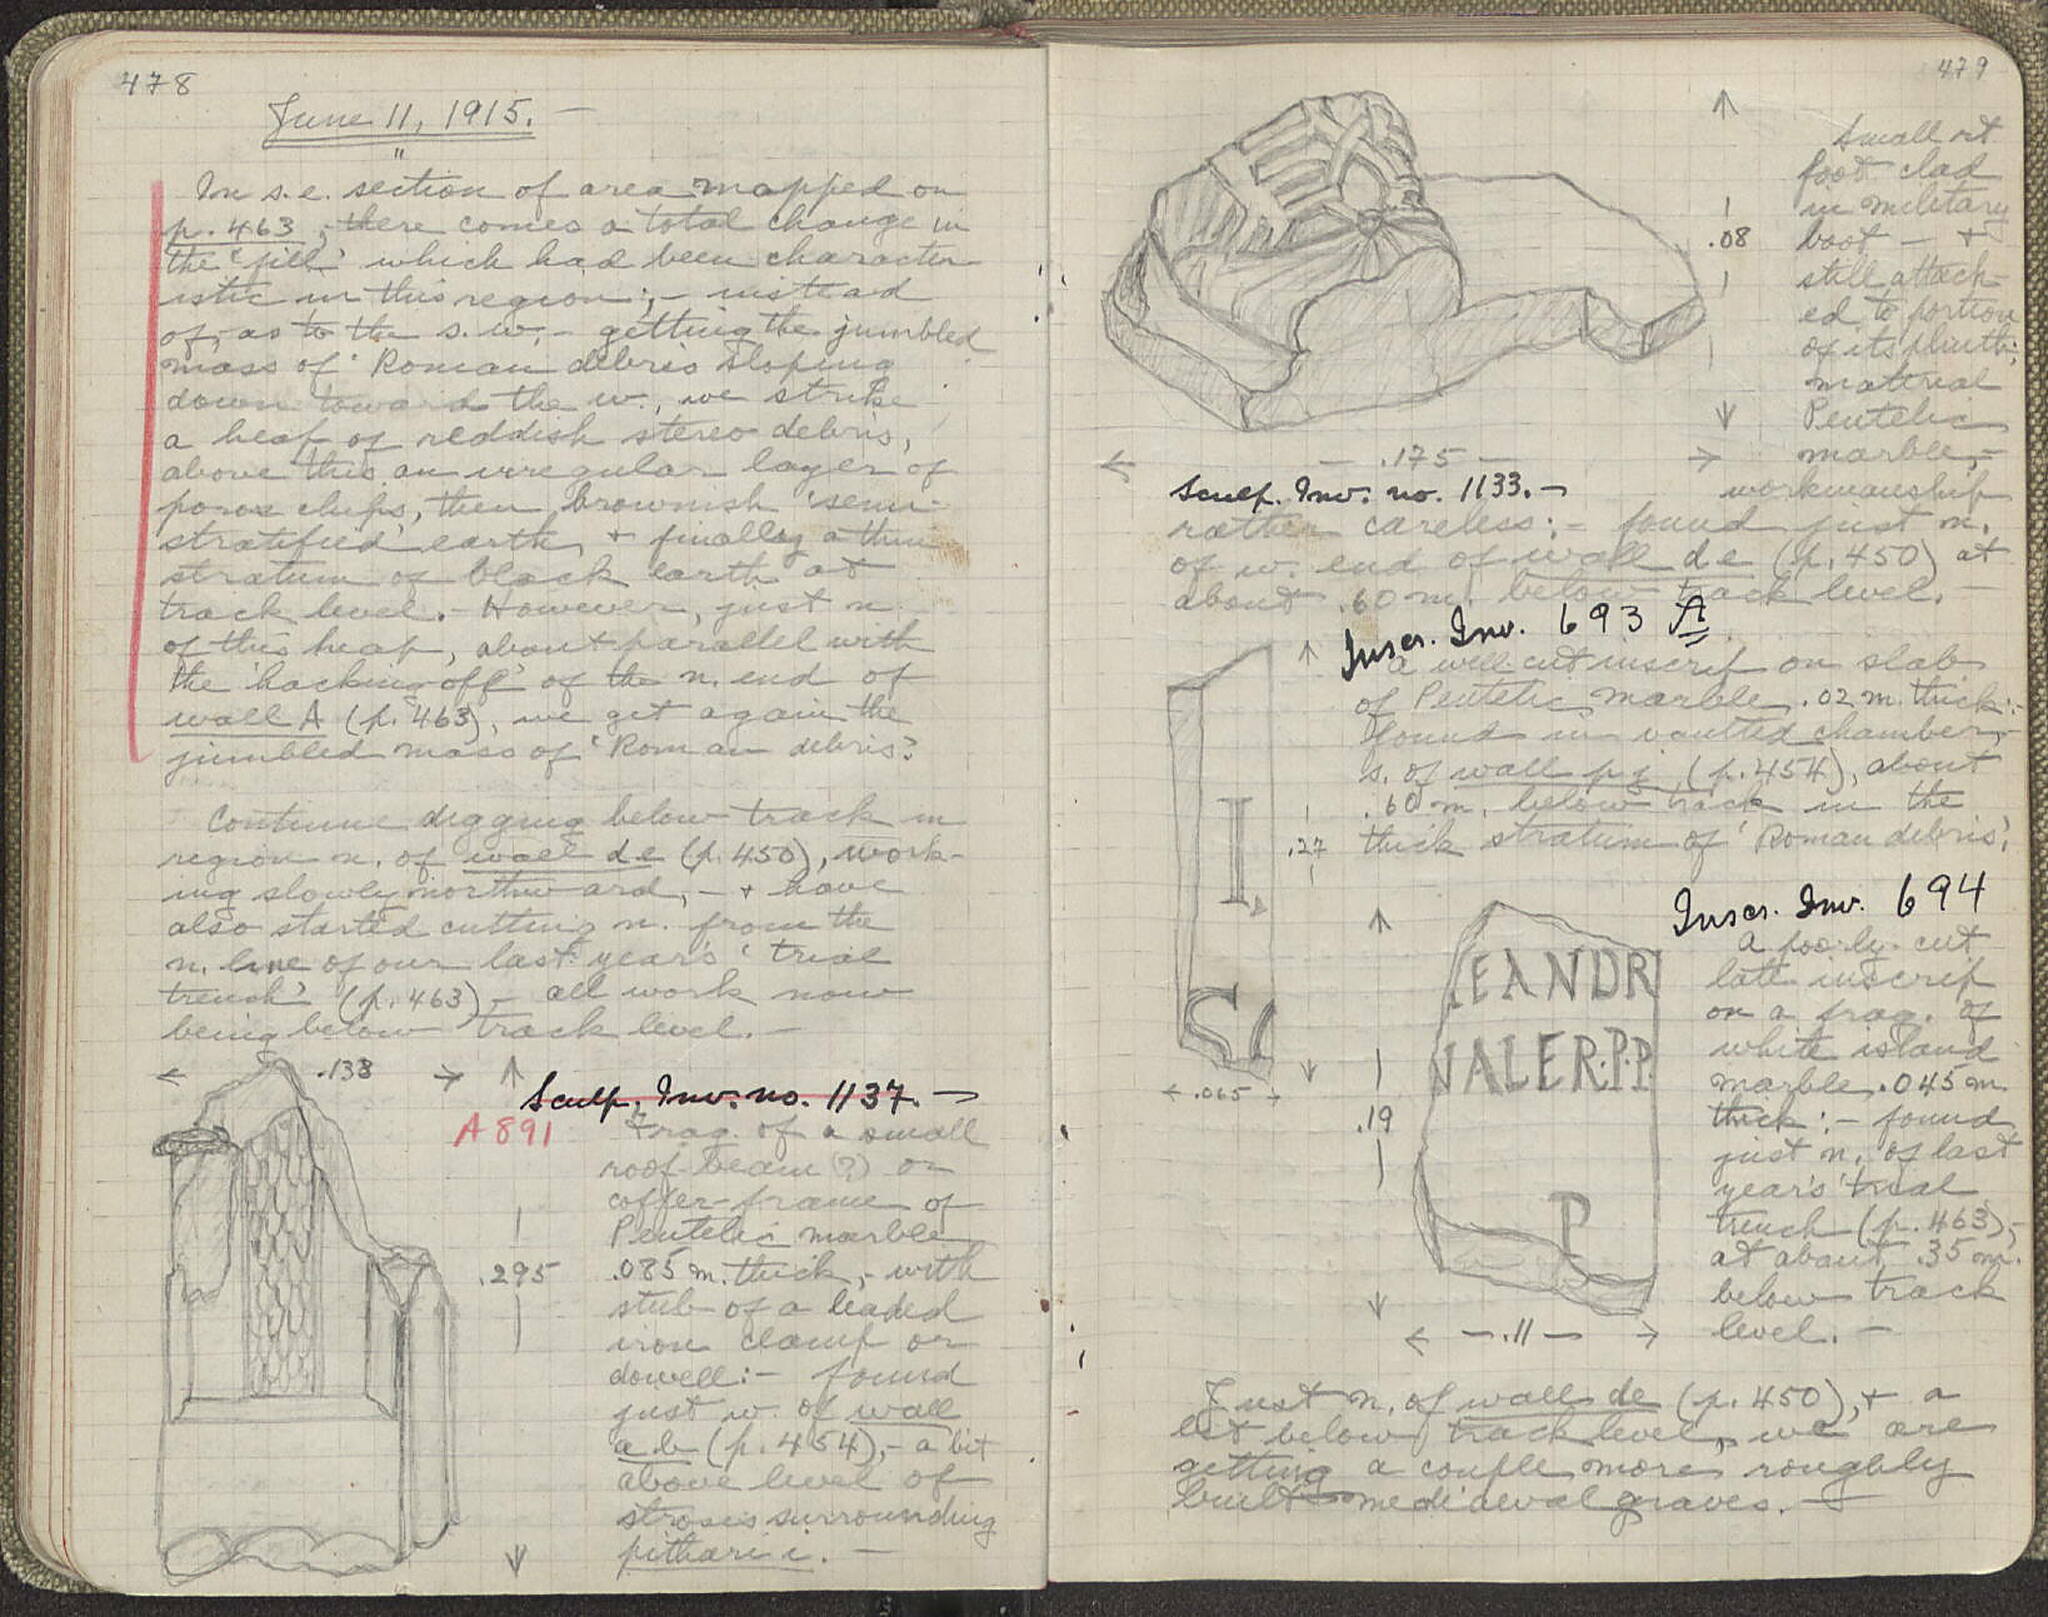 478
June 11, 1915. —
"
In s.e. section of area mapped on
p. 463, there comes a total change in
the 'fill' which had been character-
istic in this region:, – instead
of, as to the s.w, – getting the jumbled
mass of 'Roman debris sloping
down toward the w., we strike
a heap of reddish stereo debris,
above this an irregular layer of
poros chips, then brownish 'semi-
stratified' earth, + finally a thin
stratum of black earth at
track level. – However, just n.
of this heap, about parallel with
the 'hacking off' of the n. end of
wall A (p. 463), we get again the
jumbled mass of 'Roman debris'.
Continue digging below track in
region n. of wall de (p. 450), work-
ing slowly northward, – + have
also started cutting n. from the
n. line of our last year's 'trial
trench' (p. 463) – all work now
being below track level. –
.138
Sculp. Inv. no. 1137. —
A 891
Frag. of a small
roof-beam (?) or
coffer-frame of
Pentelic marble
.085 m. thick, – with
.295
stub of a leaded
iron clamp or
dowell: – found
just w. of wall
ab (p. 454), – a bit
above level of
strosis surrounding
pithari i. —
479
Small rt
foot clad
in military
boot – +
.08
still attach-
ed to portion
of its plinth;
material
Pentelic
marble, –
.175
Sculp. Inv. no. 1133. –
workmanship
rather careless: – found just n.
of w. end of wall de (p. 450) at
about .60 m. below track level. –
Inscr. Inv. 693 A
a well-cut inscrip on slab
of Pentelic marble .02 m. thick: –
found in vaulted chamber, –
s. of wall pj (p. 454), about
.60 m. below track in the
thick stratum of 'Roman debris'.
I
S
.27
.065
Inscr. Inv. 694
EANDR
VALER.P.P.
P
.19
.11
A poorly cut
late inscrip
on a frag. of
white island
marble .045 m.
thick: – found
just n. of last
year's 'trial
trench (p. 463), –
at about .35 m.
below track
level. —
Just n. of wall de (p. 450), + a
bit below track level, we are
getting a couple more roughly
built mediaeval graves. —